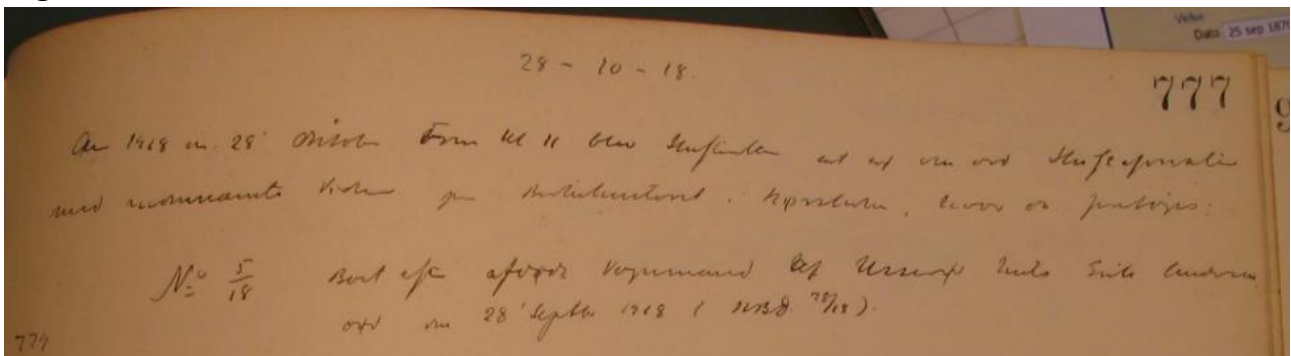 Vidner
Dato 25 sep 1870
28 - 10 - 18.
777
9
Aar 1918 den 28' Oktober Form Kl 11 blev Skifteretten sat af den ord Skifteforvalter
med medunderskrevne Vidner paa Birkekontoret i Hørsholm, hvor da foretoges:
No 5/18 Boet efter afdøde Vognmand af Usserød Niels Erik Andersen
død den 28' Septbr 1918 ( 78/18).
779